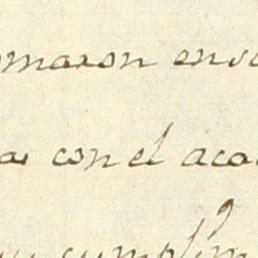 maron en
con el aca
cumplim